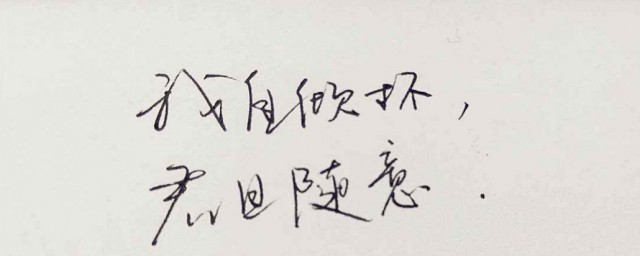 我自倾杯，
君且随意.